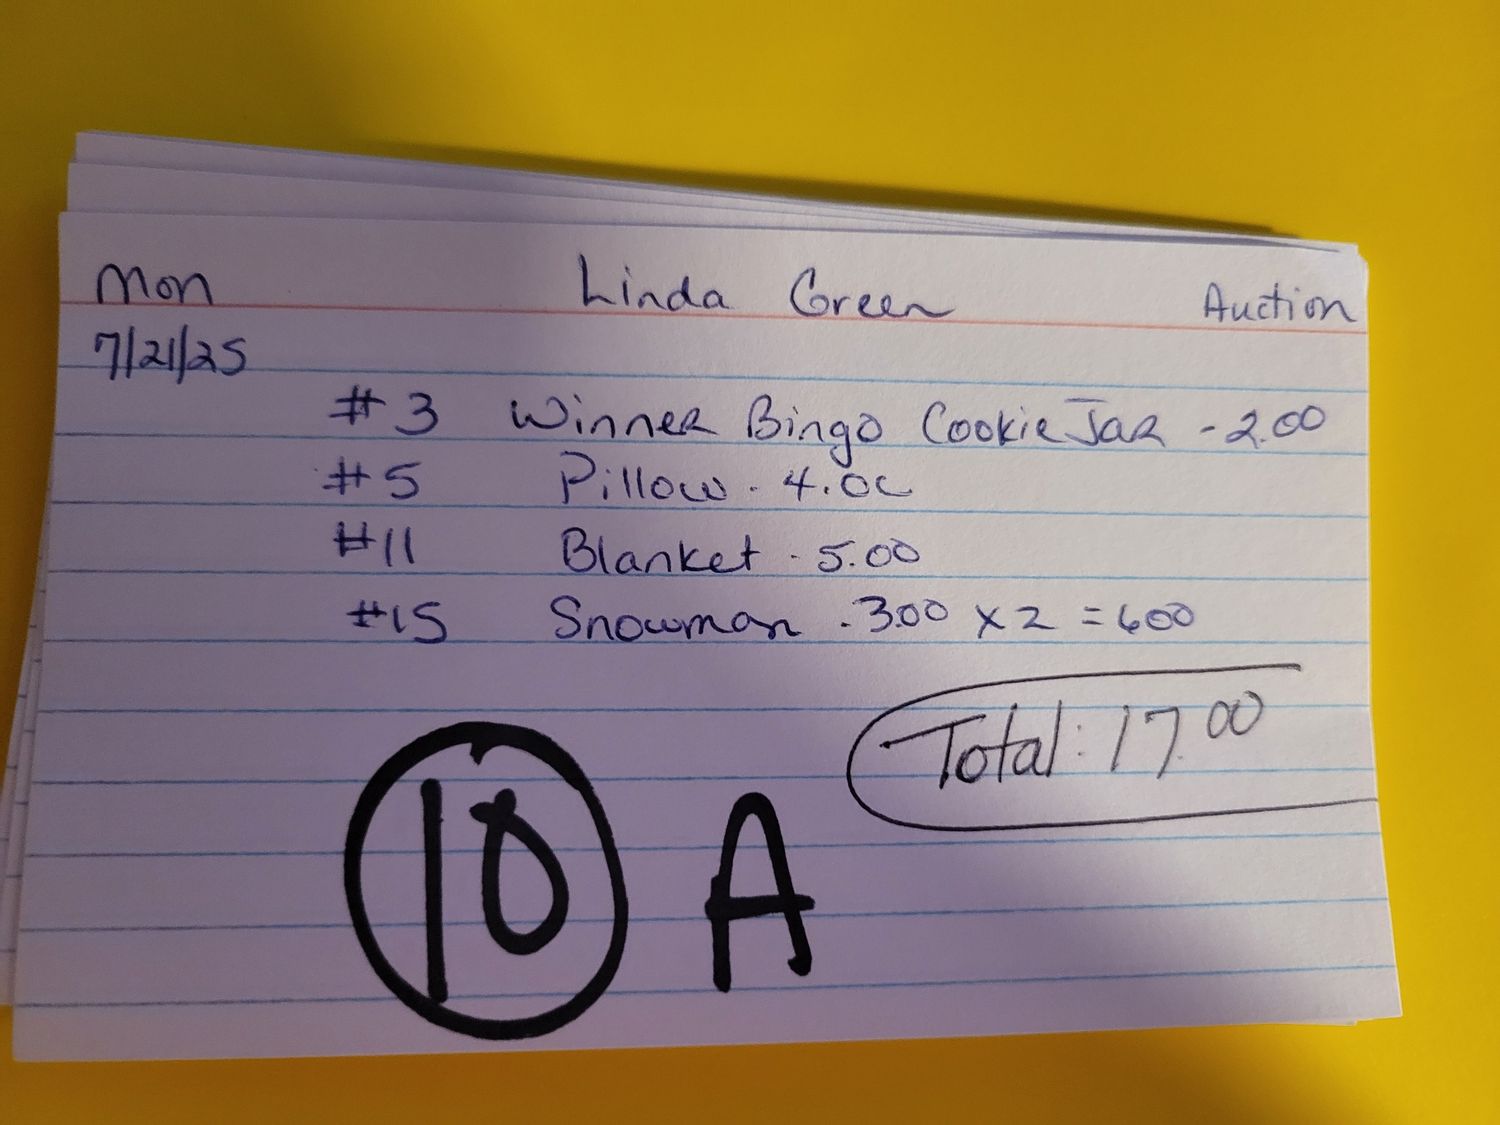 Mon Linda Green Auction
7/21/25
#3 Winner Bingo Cookie Jar - 2.00
#5 Pillow - 4.00
#11 Blanket - 5.00
#15 Snowman - 3.00 x 2 = 600
Total: 17.00
10 A